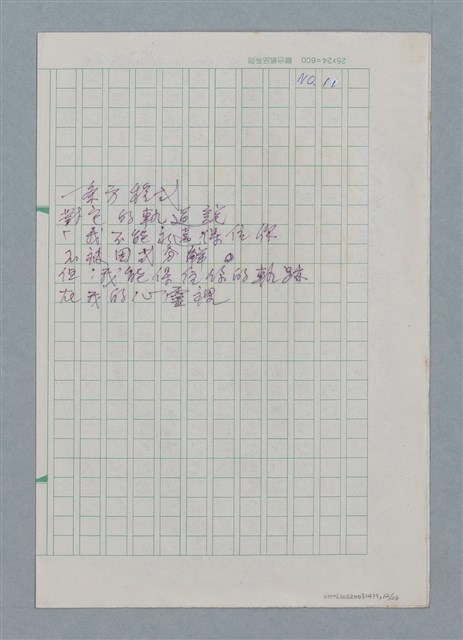 25×24=600
NO. 11
一条方程式
對它的軌道說
「我不能永遠保住你
不被因式分解。
但:我能保住你的軌跡
在我的心靈裡